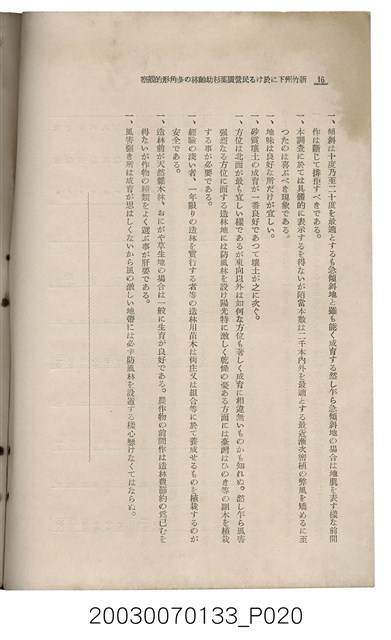 新竹州下に於ける民營廣葉杉幼齡林の多角形的觀察
16
一、傾斜は十度乃至二十度を最適とするも急傾斜地と雖も能く成育する然し乍ら急傾斜地の場合は地肌を表す樣な前間
作は斷じて排拒すべきである。
一、本調査に於ては具體的に表示するを得ないが陌當本數は二千本內外を最適とする最近漸次密植の弊風を矯めるに至
つたのは喜ぶべき現象である。
一、地味は良好な所だけが宜しい。
一、砂質壤土の成育が一番良好であつて壤土が之に次ぐ。
一、方位は北面が最も宜しい樣であるが東向以外は如何なる方位も著しく成育に相違無いものかも知れぬ。然し乍ら風害
强烈なる方位に面する造林地には防風林を設け陽光特に激しく乾燥の憂ある方面には臺灣はひのき等の副木を植栽
する事が必要である。
一、經驗の淺い者、一年限りの造林を實行する者等の造林用苗木は街庄又は組合等に於て養成せるものを植栽するのが
安全である。
一、造林前が天然雜木林、おにがや草生地の場合は一般に生育が良好である。農作物の前間作は造林費節約の爲已むを
得ないが作物の種類をよく選ぶ事が肝要である。
一、風害强き所は成育が思はしくないから風の激しい地帶には必ず防風林を設置する樣心懸けなくてはならぬ。
20030070133_P020